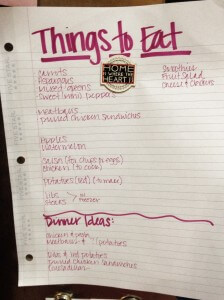 Things to Eat
Carrots
Asparagus
Mixed greens
Sweet (mini) peppers
Meatballs
Pulled Chicken Sandwiches
Apples
Watermelon
Salsa (for chips)
Chicken (to cook)
Potatoes (red) (to make)
ribs
steaks
in freezer
Smoothies
Fruit Salad
Cheese & Crackers
HOME
IS WHERE THE
HEART IS
Dinner Ideas:
Chicken &
Meatballs
potatoes
Ribs & red potatoes
Pulled Chicken Sandwiches
Quesadillas